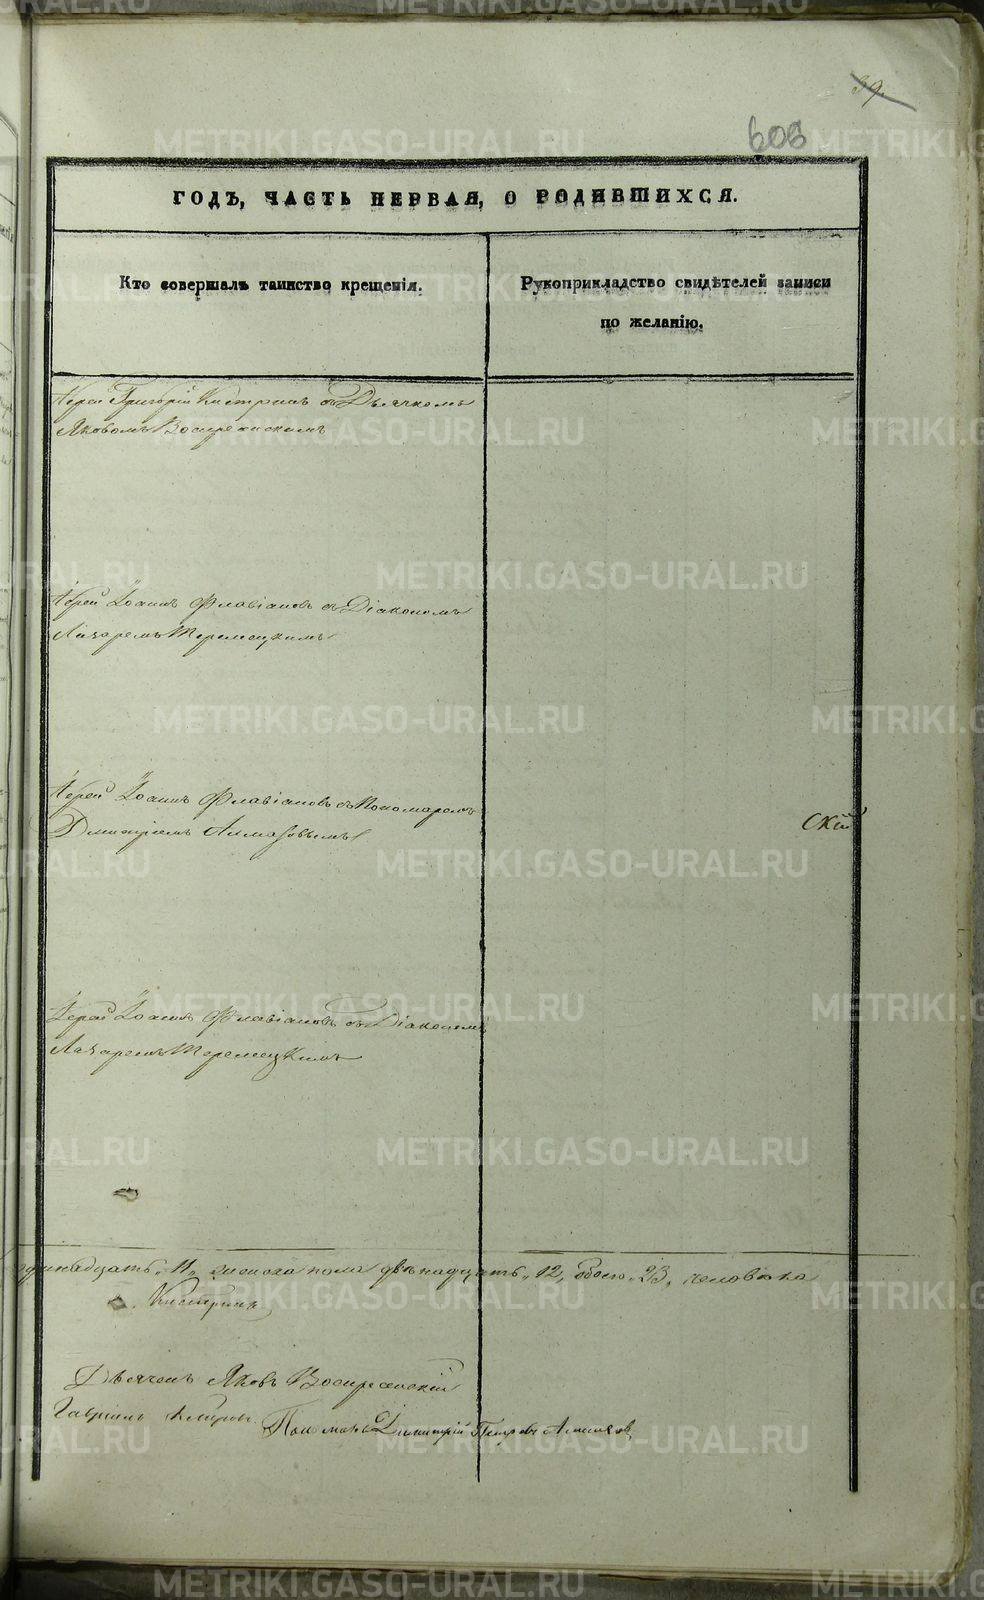 39.
606
ГОДЪ, ЧАСТЬ ПЕРВАЯ, О РОДИВШИХСЯ.
Кто совершалъ таинство крещенія.
Рукоприкладство свидѣтелей записи
по желанію.
Іерей Григорій Кистринъ съ Дьячкомъ
Яковомъ Воскресенскимъ
Іерей Іоаннъ Флавіановъ съ Діакономъ
Лазаремъ
Іерей Іоаннъ Флавіановъ съ Пономаремъ
Димитріемъ Алмазовымъ
скій
Іерей Іоаннъ Флавіановъ съ Діакономъ
Лазаремъ
одинадцать „11„ женска пола двѣнадцать „12„ обоего „23„ человѣка
Кистринъ
Дьячекъ Яковъ Воскресенскій
Гавріилъ
Пономарь Димитрій Петровъ Алмазовъ
METRIKI.GASO-URAL.RU